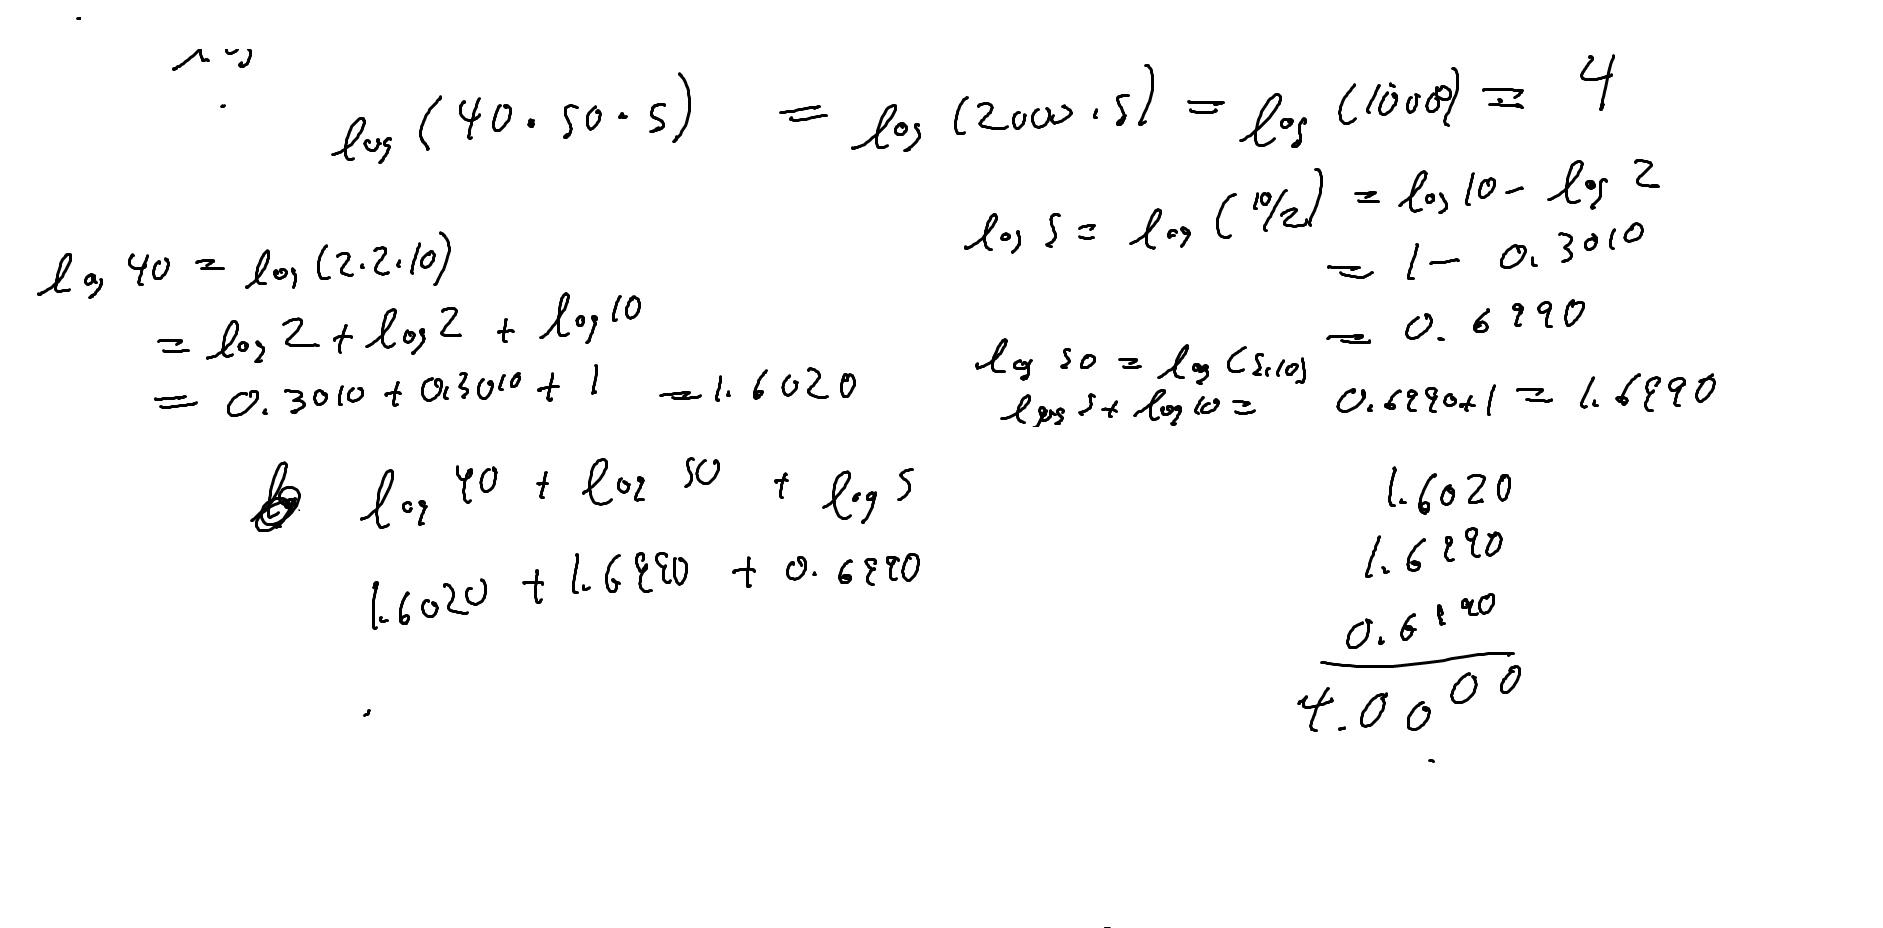 log (40 . 50 . 5) = log (2000 . 5) = log (10000) = 4
log 5 = log (10/2) = log 10 - log 2
= 1 - 0.3010
= 0.6990
log 40 = log (2.2.10)
= log 2 + log 2 + log 10
= 0.3010 + 0.3010 + 1 = 1.6020
log 50 = log (5.10)
log 5 + log 10 = 0.6990+1 = 1.6990
log 40 + log 50 + log 5
1.6020 + 1.6990 + 0.6990
1.6020
1.6990
0.6990
4.0000